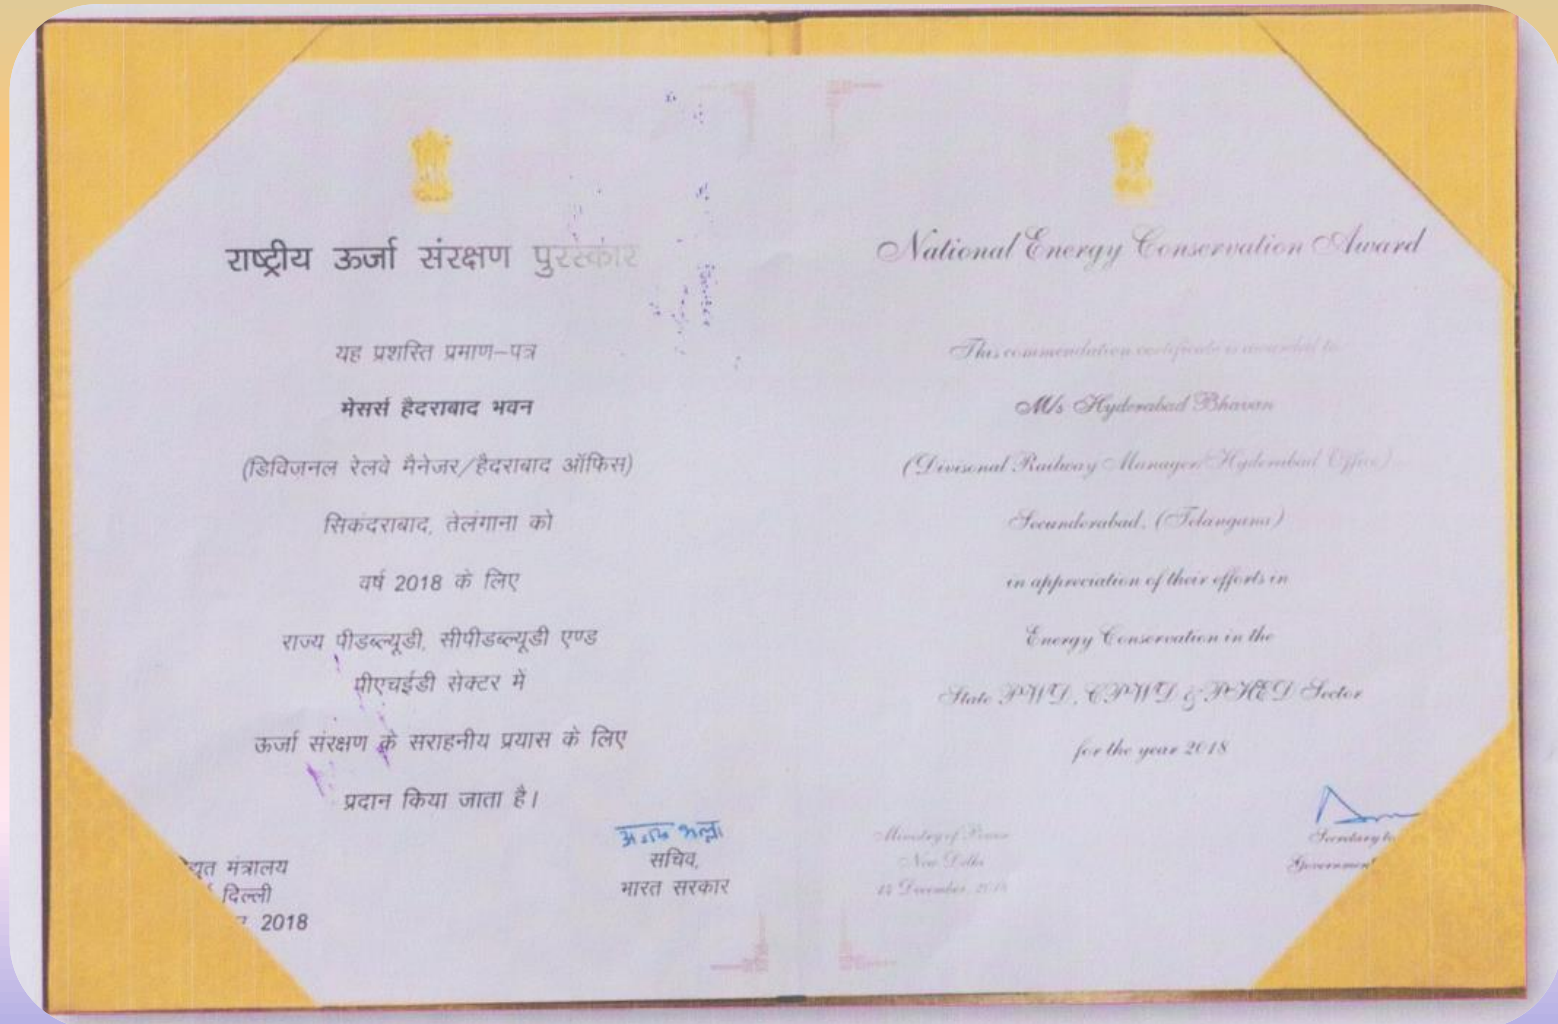 राष्ट्रीय ऊर्जा संरक्षण पुरस्कार
यह प्रशस्ति प्रमाण–पत्र
मेसर्स हैदराबाद भवन
(डिविज़नल रेलवे मैनेजर/हैदराबाद ऑफिस)
सिकंदराबाद, तेलंगाना को
वर्ष 2018 के लिए
राज्य पीडब्ल्यूडी, सीपीडब्ल्यूडी एण्ड
पीएचईडी सेक्टर में
ऊर्जा संरक्षण के सराहनीय प्रयास के लिए
प्रदान किया जाता है।
मंत्रालय
दिल्ली
2018
सचिव,
भारत सरकार
National Energy Conservation Award
This commendation certificate is awarded to
M/s Hyderabad Bhavan
(Divisonal Railway Manager/Hyderabad Office)
Secunderabad, (Telangana)
in appreciation of their efforts in
Energy Conservation in the
State PWD, CPWD & PHED Sector
for the year 2018
Ministry of Power
New Delhi
14 December, 2018
Secretary to
Government